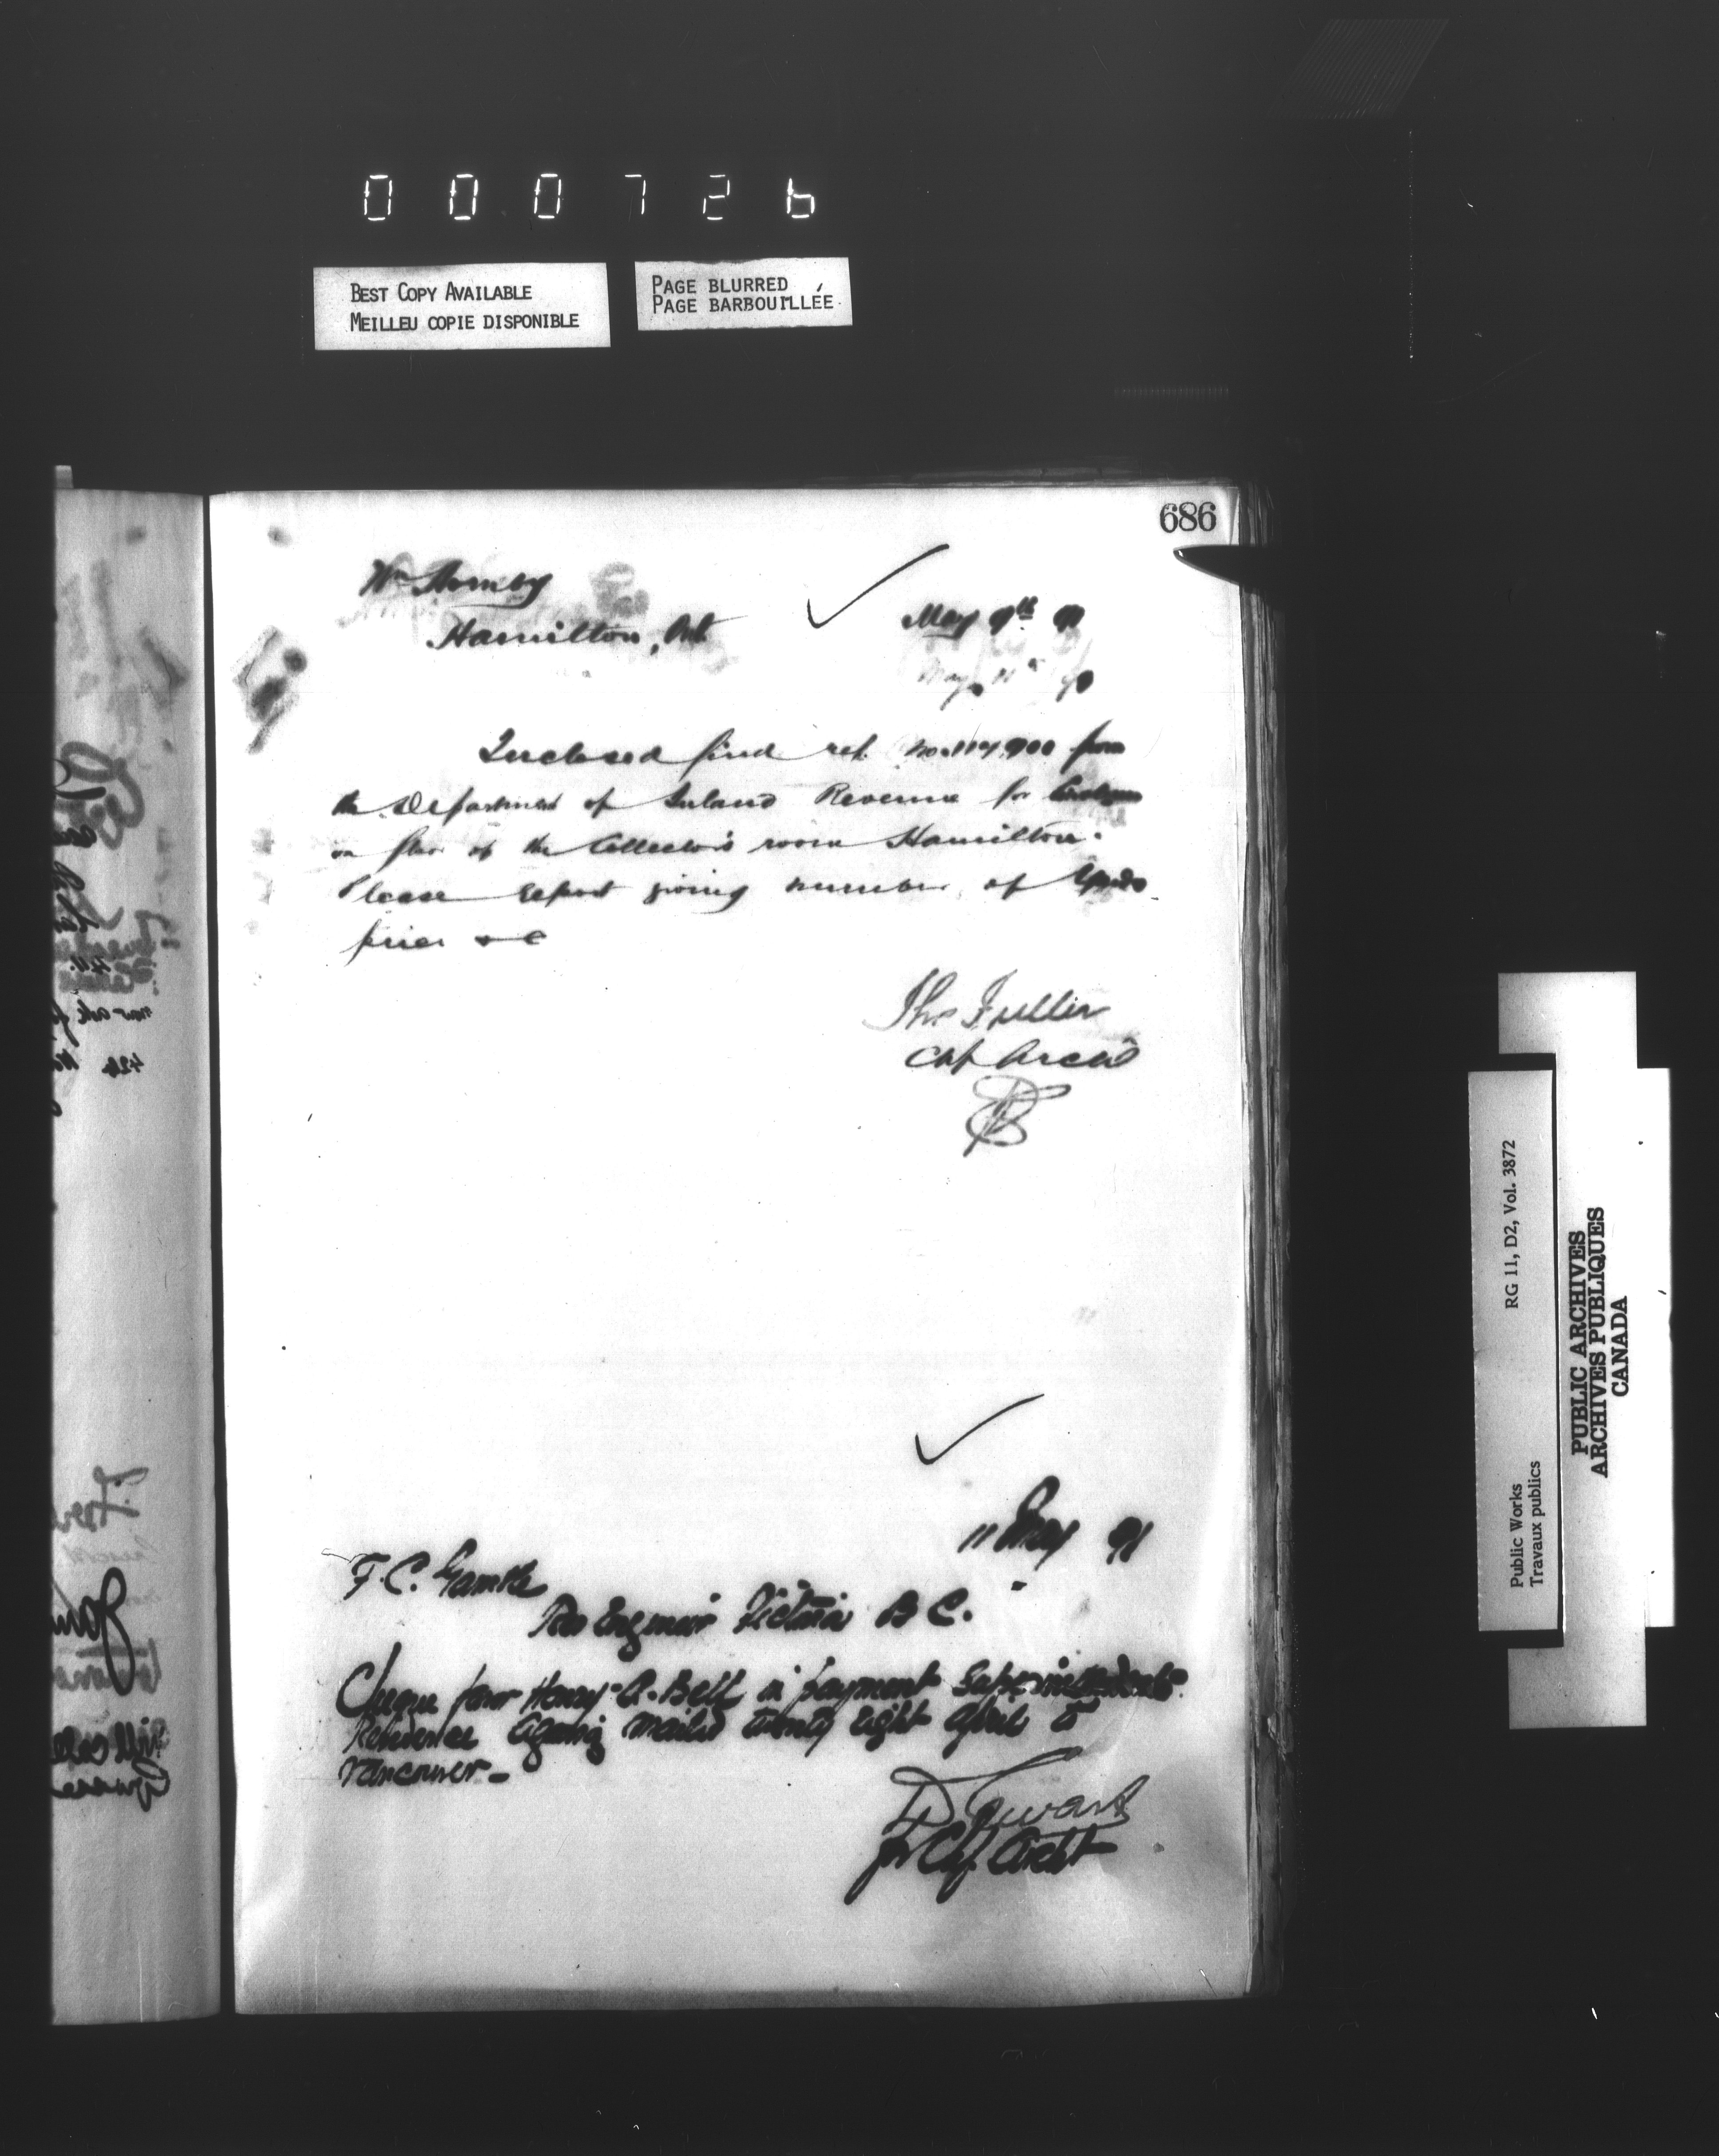 000726
BEST COPY AVAILABLE
MEILLEU COPIE DISPONIBLE
PAGE BLURRED
PAGE BARBOUILLÉE
686
Wm Hornby
Hamilton, Ont
May 9th 91
May 11th 91
Inclosed find ref. No. 114,900 from
the Department of Inland Revenue for
on floor of the Collector's room Hamilton.
Please report giving number of Yards
price &c
Thos Fuller
Chf Archt
11 May 91
F. C. Gamble
Res Engineer Victoria B C.
Cheque favor Henry A. Bell in payment Superintendents
Residence Agassiz mailed twenty eight April to
Vancouver -
D Ewart
for Chf. Archt
Public Works
Travaux publics
RG 11, D2, Vol. 3872
PUBLIC ARCHIVES
ARCHIVES PUBLIQUES
CANADA